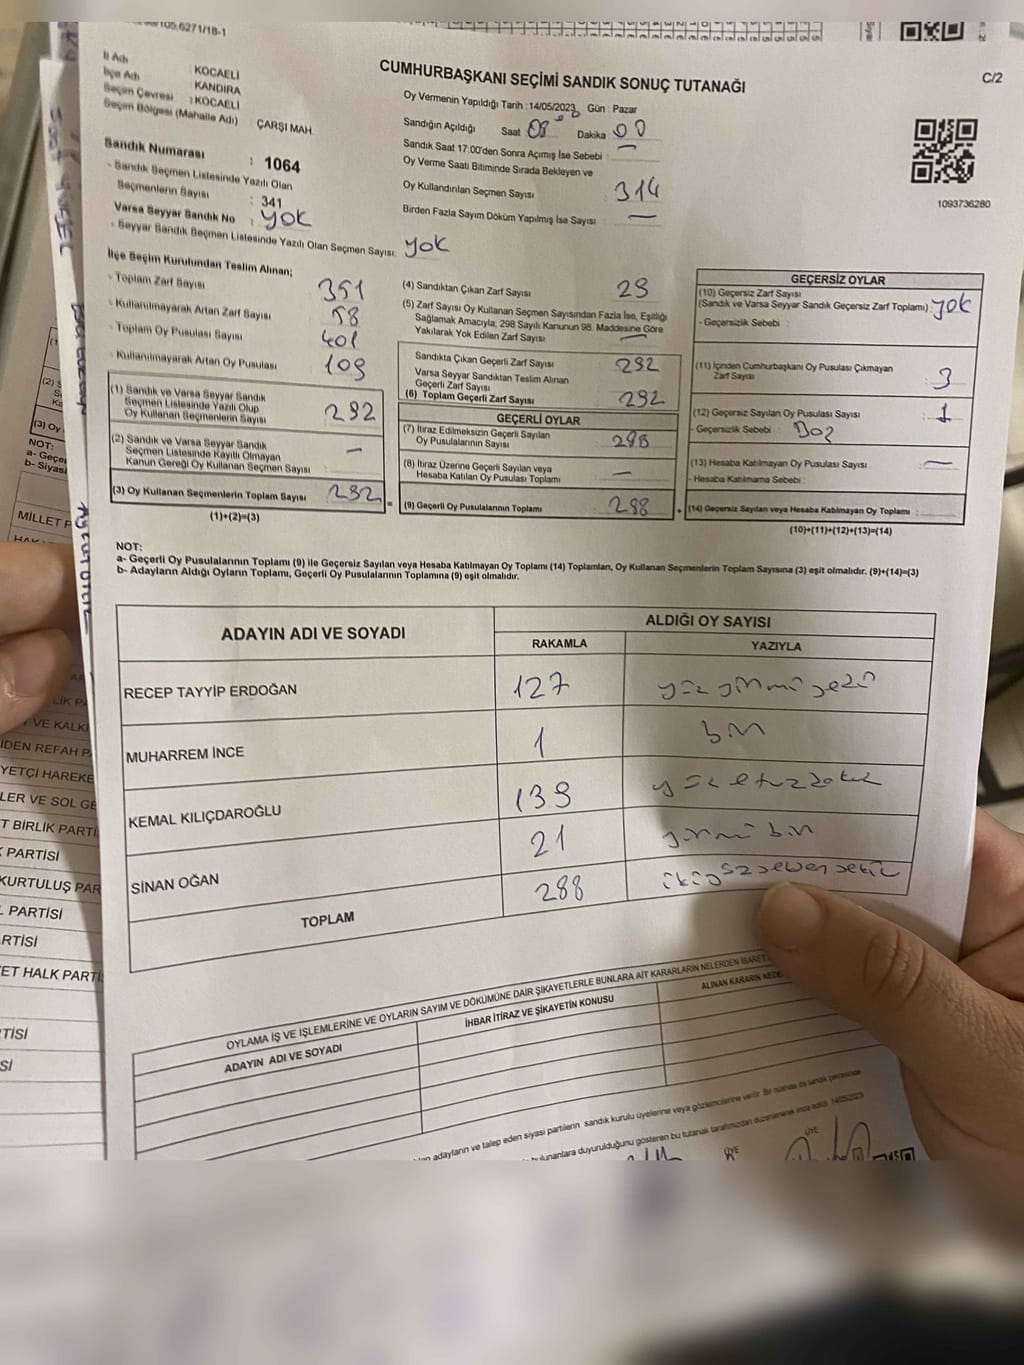 105.6271/18-1
C/2
CUMHURBAŞKANI SEÇİMİ SANDIK SONUÇ TUTANAĞI
İl Adı : KOCAELİ
İlçe Adı : KANDIRA
Seçim Çevresi : KOCAELİ
Seçim Bölgesi (Mahalle Adı) : ÇARŞI MAH.
Sandık Numarası : 1064
- Sandık Seçmen Listesinde Yazılı Olan
Seçmenlerin Sayısı : 341
Varsa Seyyar Sandık No : yok
- Seyyar Sandık Seçmen Listesinde Yazılı Olan Seçmen Sayısı: yok
Oy Vermenin Yapıldığı Tarih : 14/05/2023 Gün : Pazar
Sandığın Açıldığı Saat 08 Dakika 00
Sandık Saat 17:00'den Sonra Açımış İse Sebebi : —
Oy Verme Saati Bitiminde Sırada Bekleyen ve
Oy Kullandırılan Seçmen Sayısı 314
Birden Fazla Sayım Döküm Yapılmış İse Sayısı : —
1093736280
İlçe Seçim Kurulundan Teslim Alınan;
- Toplam Zarf Sayısı 351
- Kullanılmayarak Artan Zarf Sayısı 58
- Toplam Oy Pusulası Sayısı 401
- Kullanılmayarak Artan Oy Pusulası 109
(1) Sandık ve Varsa Seyyar Sandık
Seçmen Listesinde Yazılı Olup
Oy Kullanan Seçmenlerin Sayısı 292
(2) Sandık ve Varsa Seyyar Sandık
Seçmen Listesinde Kayıtlı Olmayan
Kanun Gereği Oy Kullanan Seçmen Sayısı : —
(3) Oy Kullanan Seçmenlerin Toplam Sayısı 292
(1)+(2)=(3)
(4) Sandıktan Çıkan Zarf Sayısı 29
(5) Zarf Sayısı Oy Kullanan Seçmen Sayısından Fazla İse, Eşitliği
Sağlamak Amacıyla; 298 Sayılı Kanunun 98. Maddesine Göre
Yakılarak Yok Edilen Zarf Sayısı : —
Sandıkta Çıkan Geçerli Zarf Sayısı 292
Varsa Seyyar Sandıktan Teslim Alınan
Geçerli Zarf Sayısı
(6) Toplam Geçerli Zarf Sayısı 292
GEÇERLİ OYLAR
(7) İtiraz Edilmeksizin Geçerli Sayılan
Oy Pusulalarının Sayısı 288
(8) İtiraz Üzerine Geçerli Sayılan veya
Hesaba Katılan Oy Pusulası Toplamı —
(9) Geçerli Oy Pusulalarının Toplamı 288
GEÇERSİZ OYLAR
(10) Geçersiz Zarf Sayısı
(Sandık ve Varsa Seyyar Sandık Geçersiz Zarf Toplamı) yok
- Geçersizlik Sebebi :
(11) İçinden Cumhurbaşkanı Oy Pusulası Çıkmayan
Zarf Sayısı 3
(12) Geçersiz Sayılan Oy Pusulası Sayısı 1
- Geçersizlik Sebebi : Boş
(13) Hesaba Katılmayan Oy Pusulası Sayısı —
- Hesaba Katılmama Sebebi :
(14) Geçersiz Sayılan veya Hesaba Katılmayan Oy Toplamı :
(10)+(11)+(12)+(13)=(14)
NOT:
a- Geçerli Oy Pusulalarının Toplamı (9) ile Geçersiz Sayılan veya Hesaba Katılmayan Oy Toplamı (14) Toplamları, Oy Kullanan Seçmenlerin Toplam Sayısına (3) eşit olmalıdır. (9)+(14)=(3)
b- Adayların Aldığı Oyların Toplamı, Geçerli Oy Pusulalarının Toplamına (9) eşit olmalıdır.
ADAYIN ADI VE SOYADI ALDIĞI OY SAYISI
RAKAMLA YAZIYLA
RECEP TAYYİP ERDOĞAN 127 yüz yirmi yedi
MUHARREM İNCE 1 bir
KEMAL KILIÇDAROĞLU 139 yüz otuz dokuz
SİNAN OĞAN 21 yirmi bir
TOPLAM 288 iki yüz seksen sekiz
OYLAMA İŞ VE İŞLEMLERİNE VE OYLARIN SAYIM VE DÖKÜMÜNE DAİR ŞİKAYETLERLE BUNLARA AİT KARARLARIN NELERDEN İBARET
ADAYIN ADI VE SOYADI İHBAR İTİRAZ VE ŞİKAYETİN KONUSU ALINAN KARARIN NEDE
adayların ve talep eden siyasi partilerin sandık kurulu üyelerine veya gözlemcilerine verilir. Bir nüshası da sandık çevresinde
bulunanlara duyurulduğunu gösteren bu tutanak tarafımızdan düzenlenerek imza edildi. 14/05/2023
ÜYE ÜYE
NOT:
a- Geçe
b- Siyasi
MİLLET P
VE KALKI
İDEN REFAH PA
YETÇİ HAREKE
LER VE SOL GE
T BİRLİK PARTİ
PARTİSİ
KURTULUŞ PAR
L PARTİSİ
ARTİSİ
ET HALK PARTİ
TİSİ
Sİ